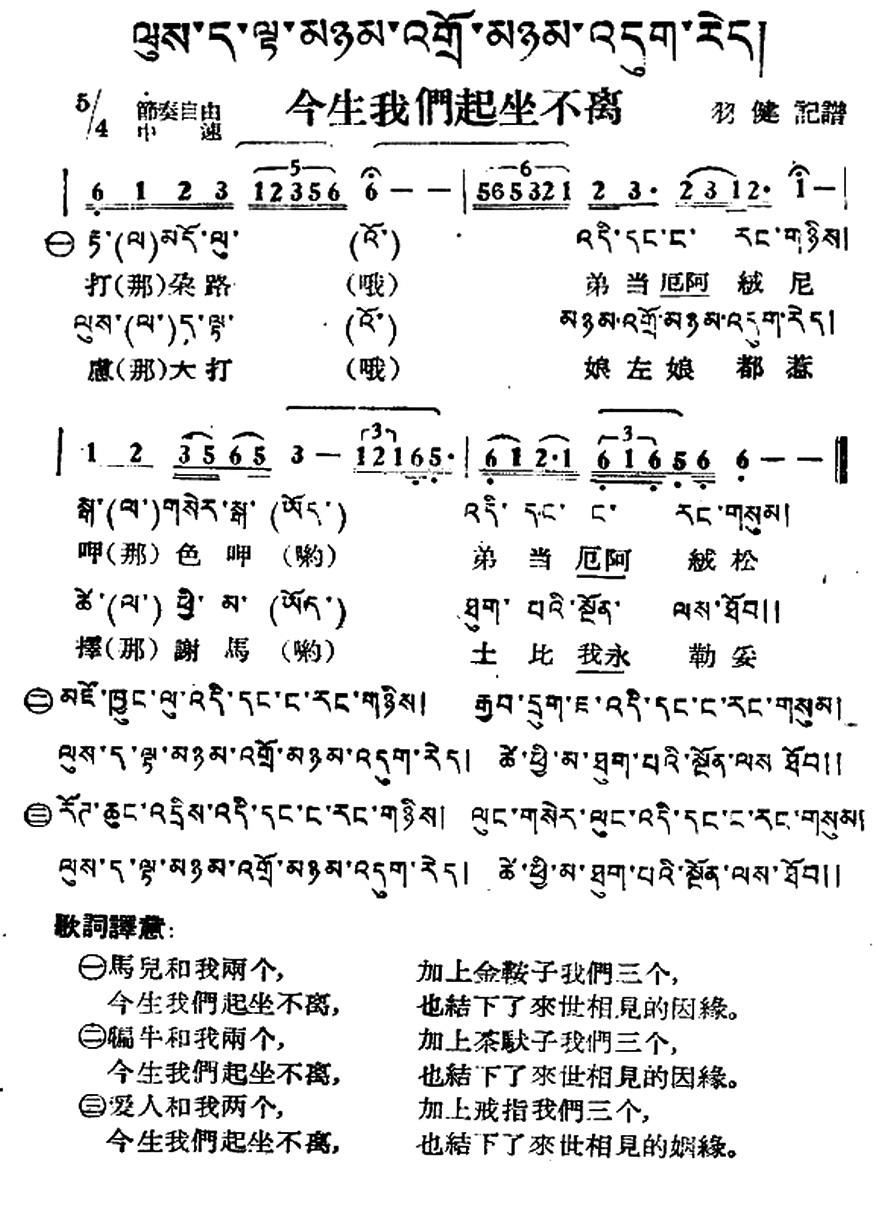 ལུས་ད་ལྟ་མཉམ་འགྲོ་མཉམ་འདུག་རེད།
5/4 節奏自由 中速 今生我們起坐不离 羽健記譜
6 1 2 3 12356 6 — — 565321 2 3· 2312· 1 —
㊀ རྟ་(ལ)མདོ་ལུ་ (འོ་) འདི་དང་ང་ རང་གཉིས།
打(那)朶路 (哦) 弟當厄阿絨尼
ལུས་(ལ་)ད་ལྟ་ (འོ་) མཉམ་འགྲོ་མཉམ་འདུག་རེད།
慮(那)大打 (哦) 娘左娘都惹
1 2 35 65 3 — 12165· 61 2·1 616 56 6 — —
སྒ་(ལ་)གསེར་སྒ་(ཨོད་) འདི་དང་ང་ རང་གསུམ།
呷(那)色呷(喲) 弟當厄阿絨松
ཚེ་(ལ་)ཕྱི་མ་(ཨོད་) ཐུག་པའི་སྨོན་ ལས་ཐོབ།།
擇(那)謝馬(喲) 土比我永勒妥
㊁ མཛོ་ཁྱུང་ལུ་འདི་དང་ང་རང་གཉིས། རྒྱབ་དྲུག་ཇ་འདི་དང་ང་རང་གསུམ།
ལུས་ད་ལྟ་མཉམ་འགྲོ་མཉམ་འདུག་རེད། ཚེ་ཕྱི་མ་ཐུག་པའི་སྨོན་ལས་ཐོབ།།
㊂ རོཊ་ཆུང་འདྲིས་འདི་དང་ང་རང་གཉིས། ལུང་གསེར་ལུང་འདི་དང་ང་རང་གསུམ།
ལུས་ད་ལྟ་མཉམ་འགྲོ་མཉམ་འདུག་རེད། ཚེ་ཕྱི་མ་ཐུག་པའི་སྨོན་ལས་ཐོབ།།
歌詞譯意：
㊀馬兒和我兩个， 加上金鞍子我們三个，
今生我們起坐不离， 也結下了來世相見的因緣。
㊁犏牛和我兩个， 加上茶馱子我們三个，
今生我們起坐不离， 也結下了來世相見的因緣。
㊂爱人和我两个， 加上戒指我們三个，
今生我們起坐不离， 也結下了來世相見的姻緣。